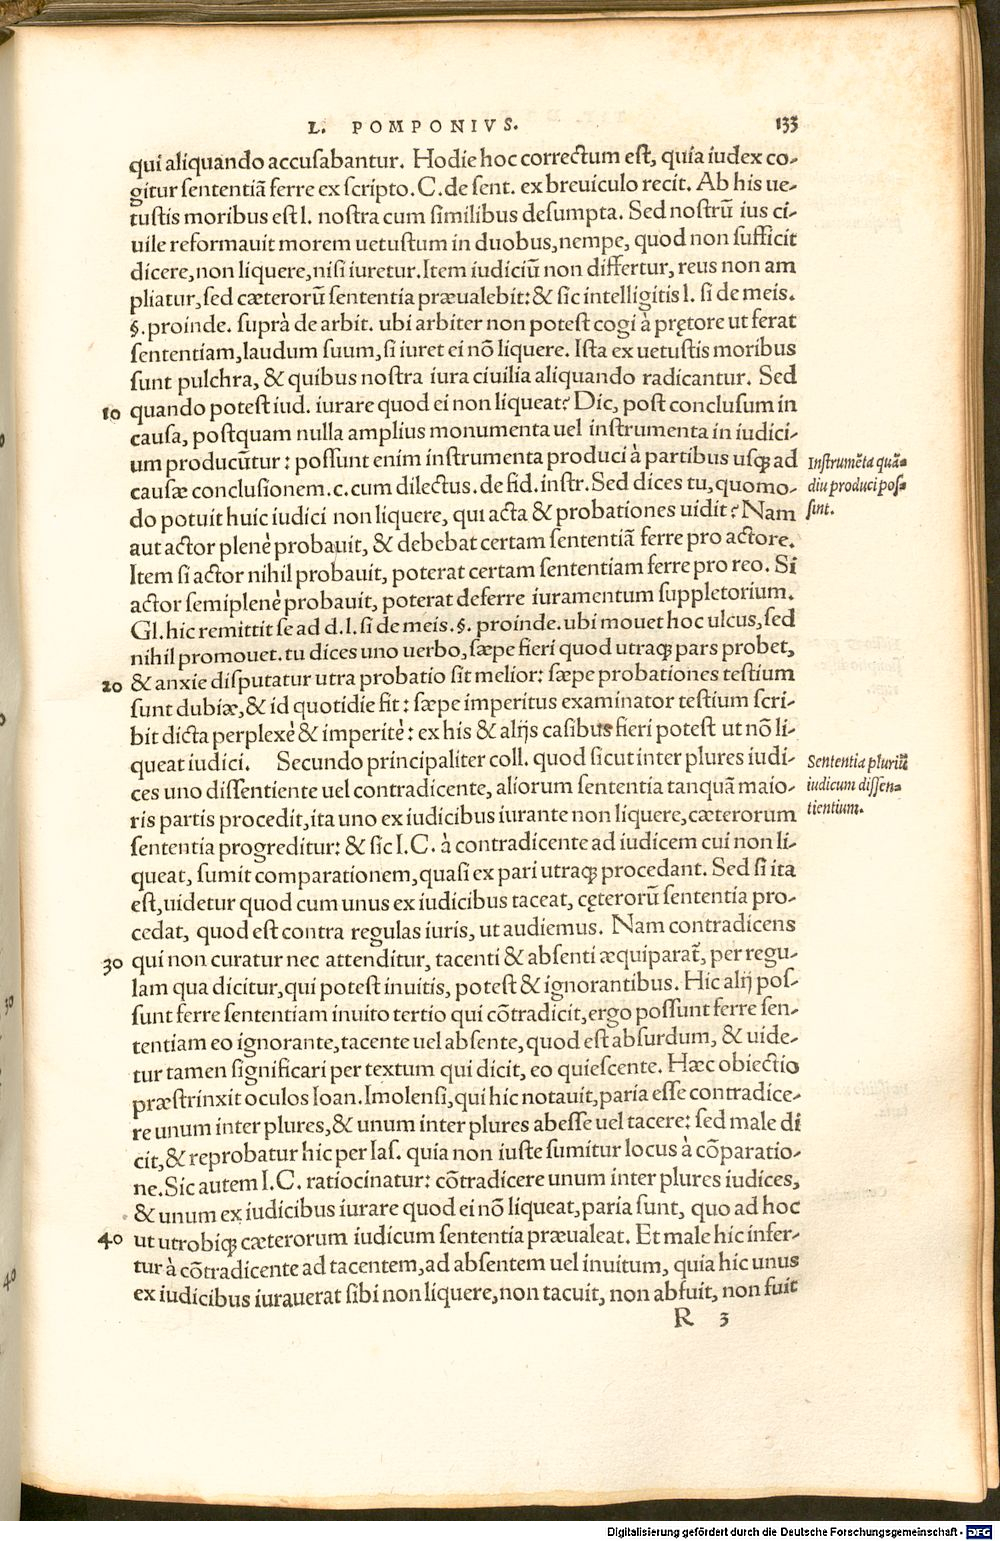 L. POMPONIVS. 133
qui aliquando accusabantur. Hodie hoc correctum est, quia iudex co-
gitur sententiã ferre ex scripto. C. de sent. ex breuiculo recit. Ab his ue-
tustis moribus est l. nostra cum similibus desumpta. Sed nostrũ ius ci-
uile reformauit morem uetustum in duobus, nempe, quod non sufficit
dicere, non liquere, nisi iuretur. Item iudiciũ non differtur, reus non am
pliatur, sed cæterorũ sententia præualebit: & sic intelligitis l. si de meis.
§. proinde. suprà de arbit. ubi arbiter non potest cogi à prętore ut ferat
sententiam, laudum suum, si iuret ei nõ liquere. Ista ex uetustis moribus
sunt pulchra, & quibus nostra iura ciuilia aliquando radicantur. Sed
10 quando potest iud. iurare quod ei non liqueat? Dic, post conclusum in
causa, postquam nulla amplius monumenta uel instrumenta in iudici-
um producũtur: possunt enim instrumenta produci à partibus usq; ad
causæ conclusionem. c. cum dilectus. de fid. instr. Sed dices tu, quomo-
do potuit huic iudici non liquere, qui acta & probationes uidit? Nam
Instrumẽta quã-
diu produci pos-
sint.
aut actor plenè probauit, & debebat certam sententiã ferre pro actore.
Item si actor nihil probauit, poterat certam sententiam ferre pro reo. Si
actor semiplenè probauit, poterat deferre iuramentum suppletorium.
Gl. hic remittit se ad d. l. si de meis. §. proinde. ubi mouet hoc ulcus, sed
nihil promouet. tu dices uno uerbo, sæpe fieri quod utraq; pars probet,
20 & anxie disputatur utra probatio sit melior: sæpe probationes testium
sunt dubiæ, & id quotidie fit: sæpe imperitus examinator testium scri-
bit dicta perplexè & imperitè: ex his & alijs casibus fieri potest ut nõ li-
queat iudici. Secundo principaliter coll. quod sicut inter plures iudi-
ces uno dissentiente uel contradicente, aliorum sententia tanquã maio-
ris partis procedit, ita uno ex iudicibus iurante non liquere, cæterorum
Sententia pluriũ
iudicum dissen-
tientium.
sententia progreditur: & sic I. C. à contradicente ad iudicem cui non li-
queat, sumit comparationem, quasi ex pari utraq; procedant. Sed si ita
est, uidetur quod cum unus ex iudicibus taceat, cęterorũ sententia pro-
cedat, quod est contra regulas iuris, ut audiemus. Nam contradicens
30 qui non curatur nec attenditur, tacenti & absenti æquiparat̃, per regu-
lam qua dicitur, qui potest inuitis, potest & ignorantibus. Hic alij pos-
sunt ferre sententiam inuito tertio qui cõtradicit, ergo possunt ferre sen-
tentiam eo ignorante, tacente uel absente, quod est absurdum, & uide-
tur tamen significari per textum qui dicit, eo quiescente. Hæc obiectio
præstrinxit oculos Ioan. Imolensi, qui hic notauit, paria esse contradice-
re unum inter plures, & unum inter plures abesse uel tacere: sed male di
cit, & reprobatur hic per Ias. quia non iuste sumitur locus à cõparatio-
ne. Sic autem I. C. ratiocinatur: cõtradicere unum inter plures iudices,
& unum ex iudicibus iurare quod ei nõ liqueat, paria sunt, quo ad hoc
40 ut utrobiq; cæterorum iudicum sententia præualeat. Et male hic infer-
tur à cõtradicente ad tacentem, ad absentem uel inuitum, quia hic unus
ex iudicibus iurauerat sibi non liquere, non tacuit, non abfuit, non fuit
R 3
Digitalisierung gefördert durch die Deutsche Forschungsgemeinschaft - DFG